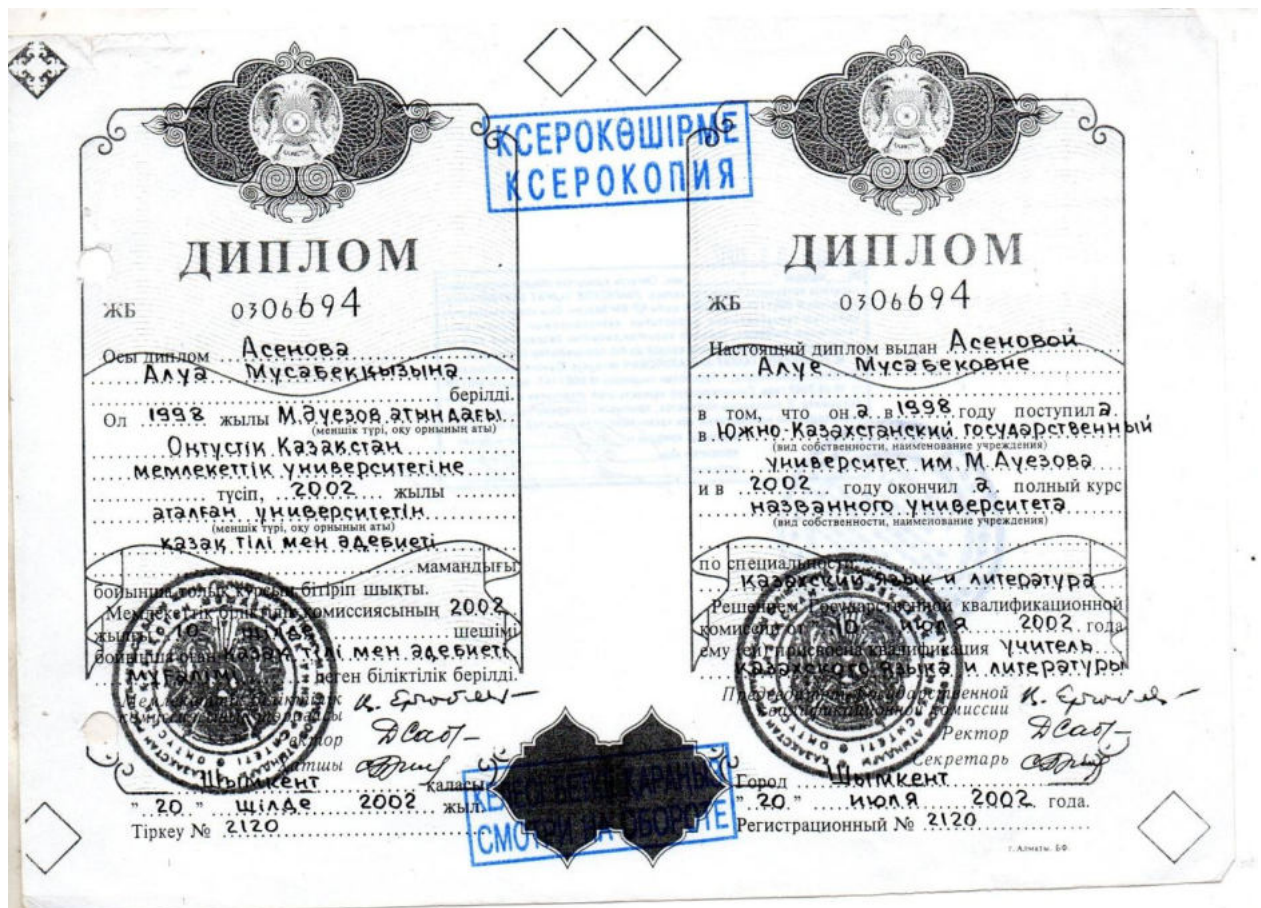 КСЕРОКӨШІРМЕ
КСЕРОКОПИЯ
ДИПЛОМ
ЖБ 0306694
Осы диплом Асенова
Алуа Мусабекқызына
берілді.
Ол 1998 жылы М.Әуезов атындағы
(меншік түрі, оқу орнының аты)
Оңтүстік Қазақстан
мемлекеттік университетіне
түсіп, 2002 жылы
аталған университетін
(меншік түрі, оқу орнының аты)
қазақ тілі мен әдебиеті
мамандығы
бойынша толық курсын бітіріп шықты.
Мемлекеттік біліктілік комиссиясының 2002
жылғы 10 шілде шешімі
бойынша оған қазақ тілі мен әдебиеті
мұғалімі деген біліктілік берілді.
Мемлекеттік біліктілік
комиссиясының төрағасы
Ректор
Хатшы
Шымкент қаласы
" 20 " шілде 2002 жыл.
Тіркеу № 2120
ДИПЛОМ
ЖБ 0306694
Настоящий диплом выдан Асеновой
Алуе Мусабековне
в том, что он а в 1998 году поступил а
в Южно-Казахстанский государственный
(вид собственности, наименование учреждения)
университет им. М. Ауезова
и в 2002 году окончил а полный курс
названного университета
(вид собственности, наименование учреждения)
по специальности
казахский язык и литература
Решением Государственной квалификационной
комиссии от 10 июля 2002 года
ему (ей) присвоена квалификация учитель
казахского языка и литературы
Председатель Государственной
квалификационной комиссии
Ректор
Секретарь
Город Шымкент
" 20 " июля 2002 года.
Регистрационный № 2120
г. Алматы. БФ.
КЕЛЕСІ БЕТКЕ ҚАРАҢЫЗ
СМОТРИ НА ОБОРОТЕ